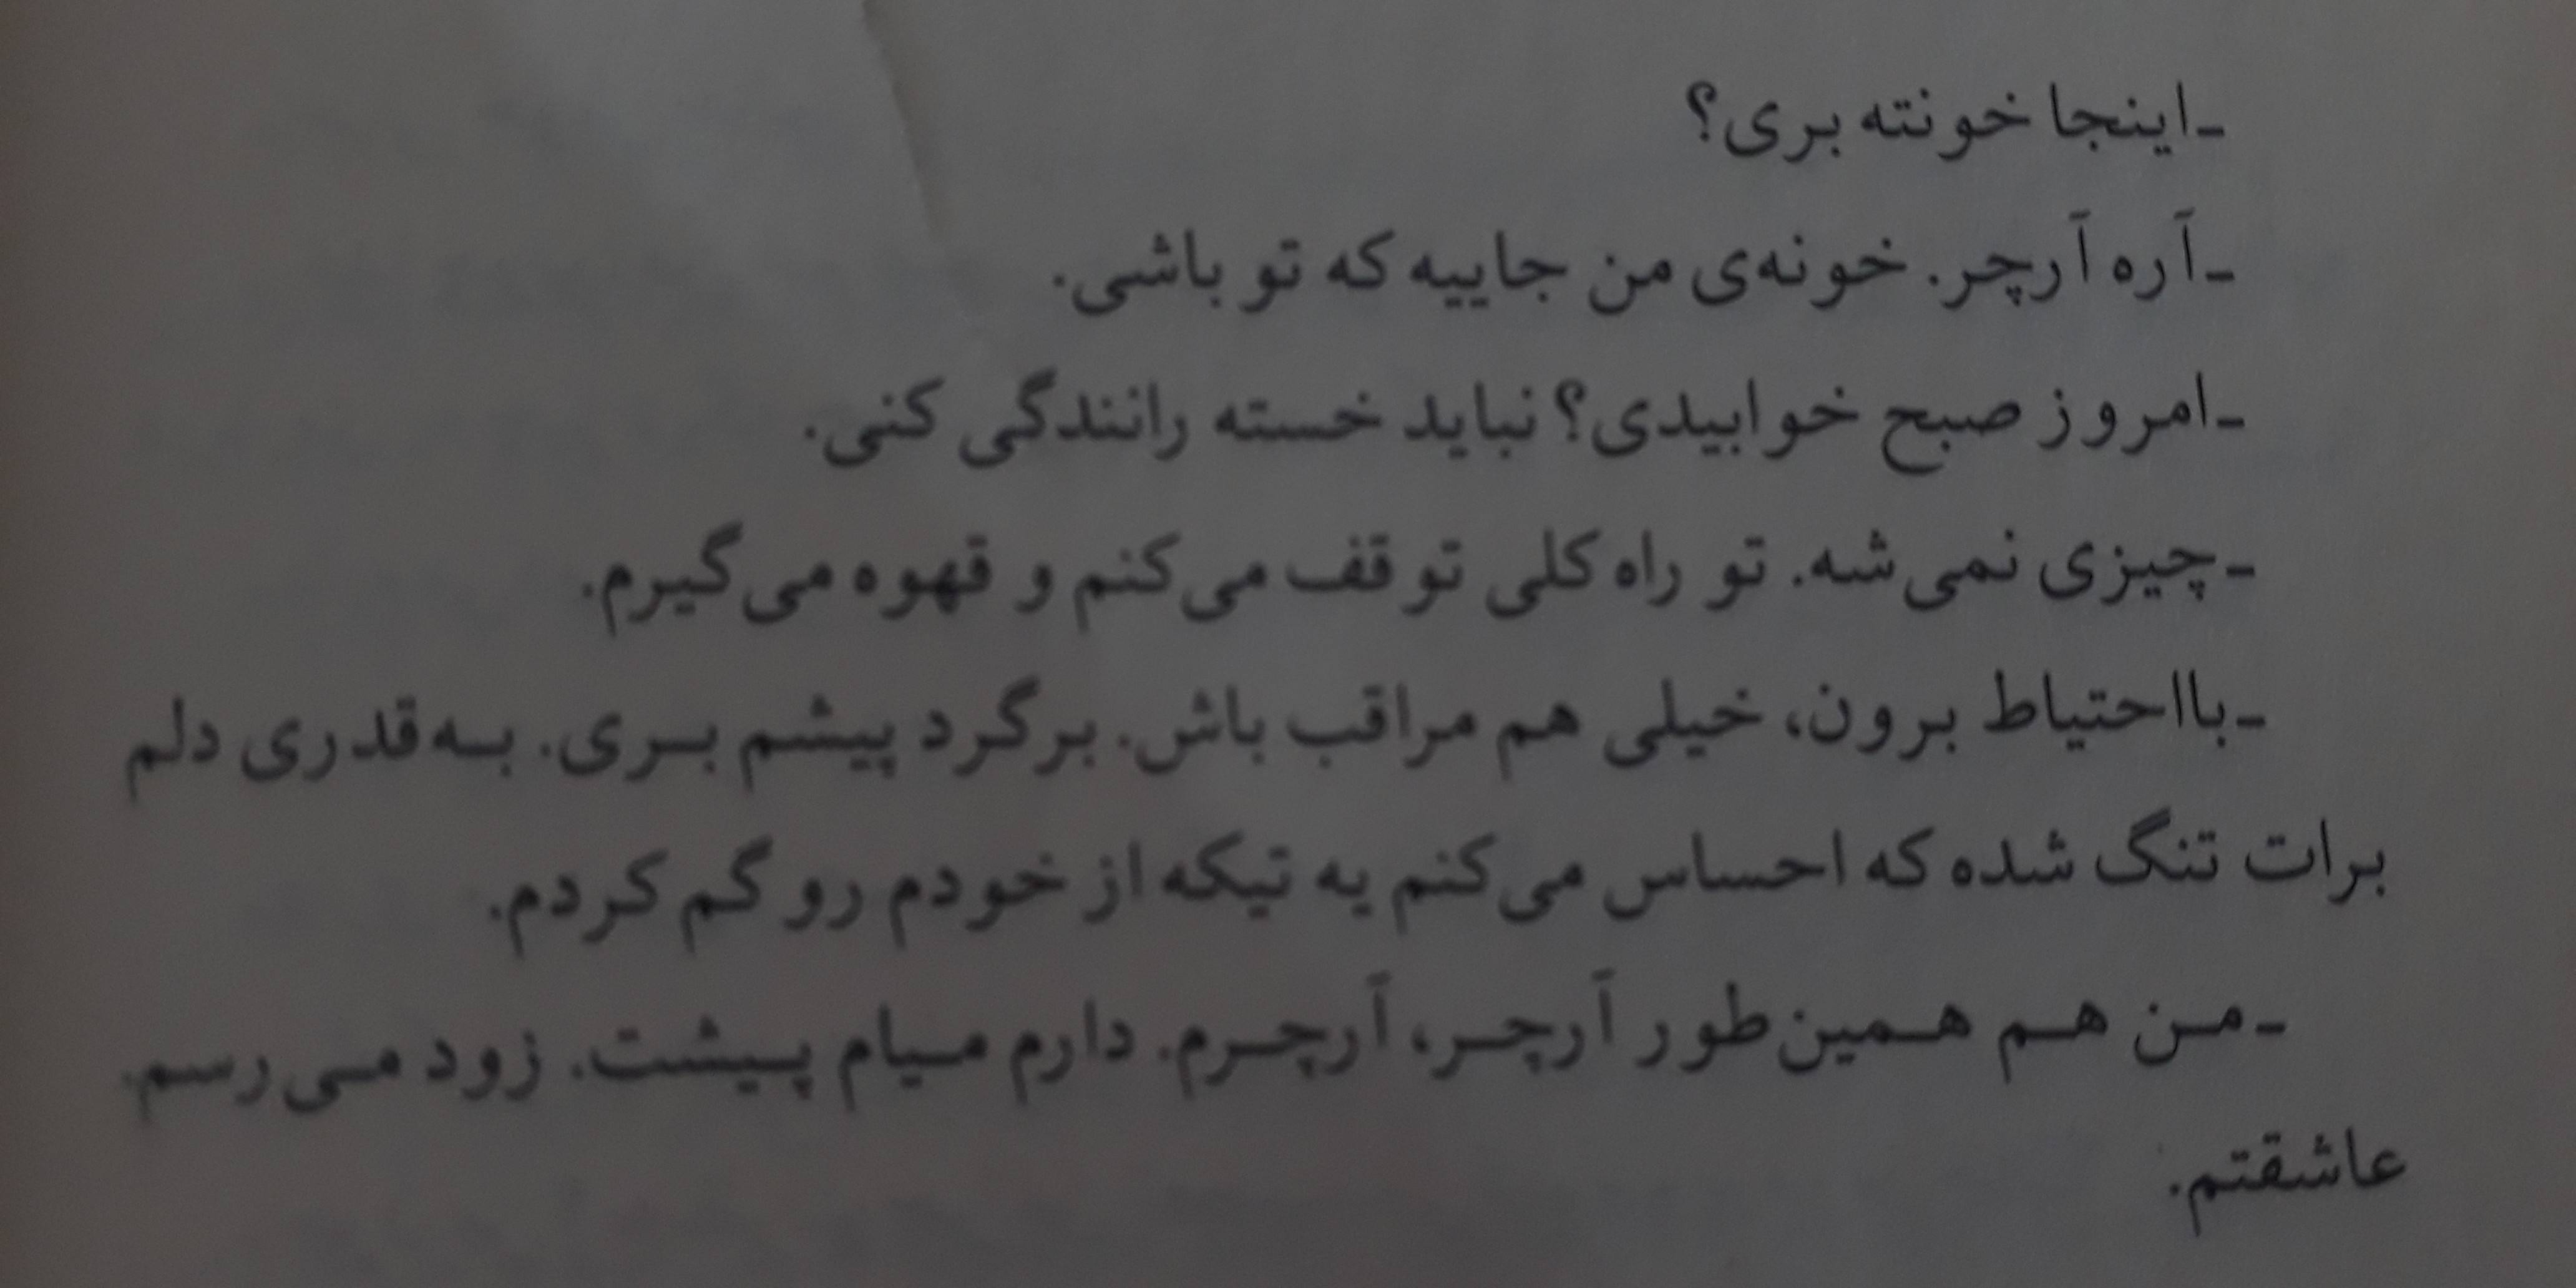 ـاینجا خونته بری؟
ـآره آرچر. خونه‌ی من جاییه که تو باشی.
ـامروز صبح خوابیدی؟ نباید خسته رانندگی کنی.
ـچیزی نمی‌شه. تو راه کلی توقف می‌کنم و قهوه می‌گیرم.
ـبااحتیاط برون، خیلی هم مراقب باش. برگرد پیشم بـری. بـه‌قدری دلم
برات تنگ شده که احساس می‌کنم یه تیکه از خودم رو گم کردم.
ـمـن هـم هـمین‌طور آرچـر، آرچـرم. دارم مـیام پـیشت. زود مـی‌رسم.
عاشقتم.